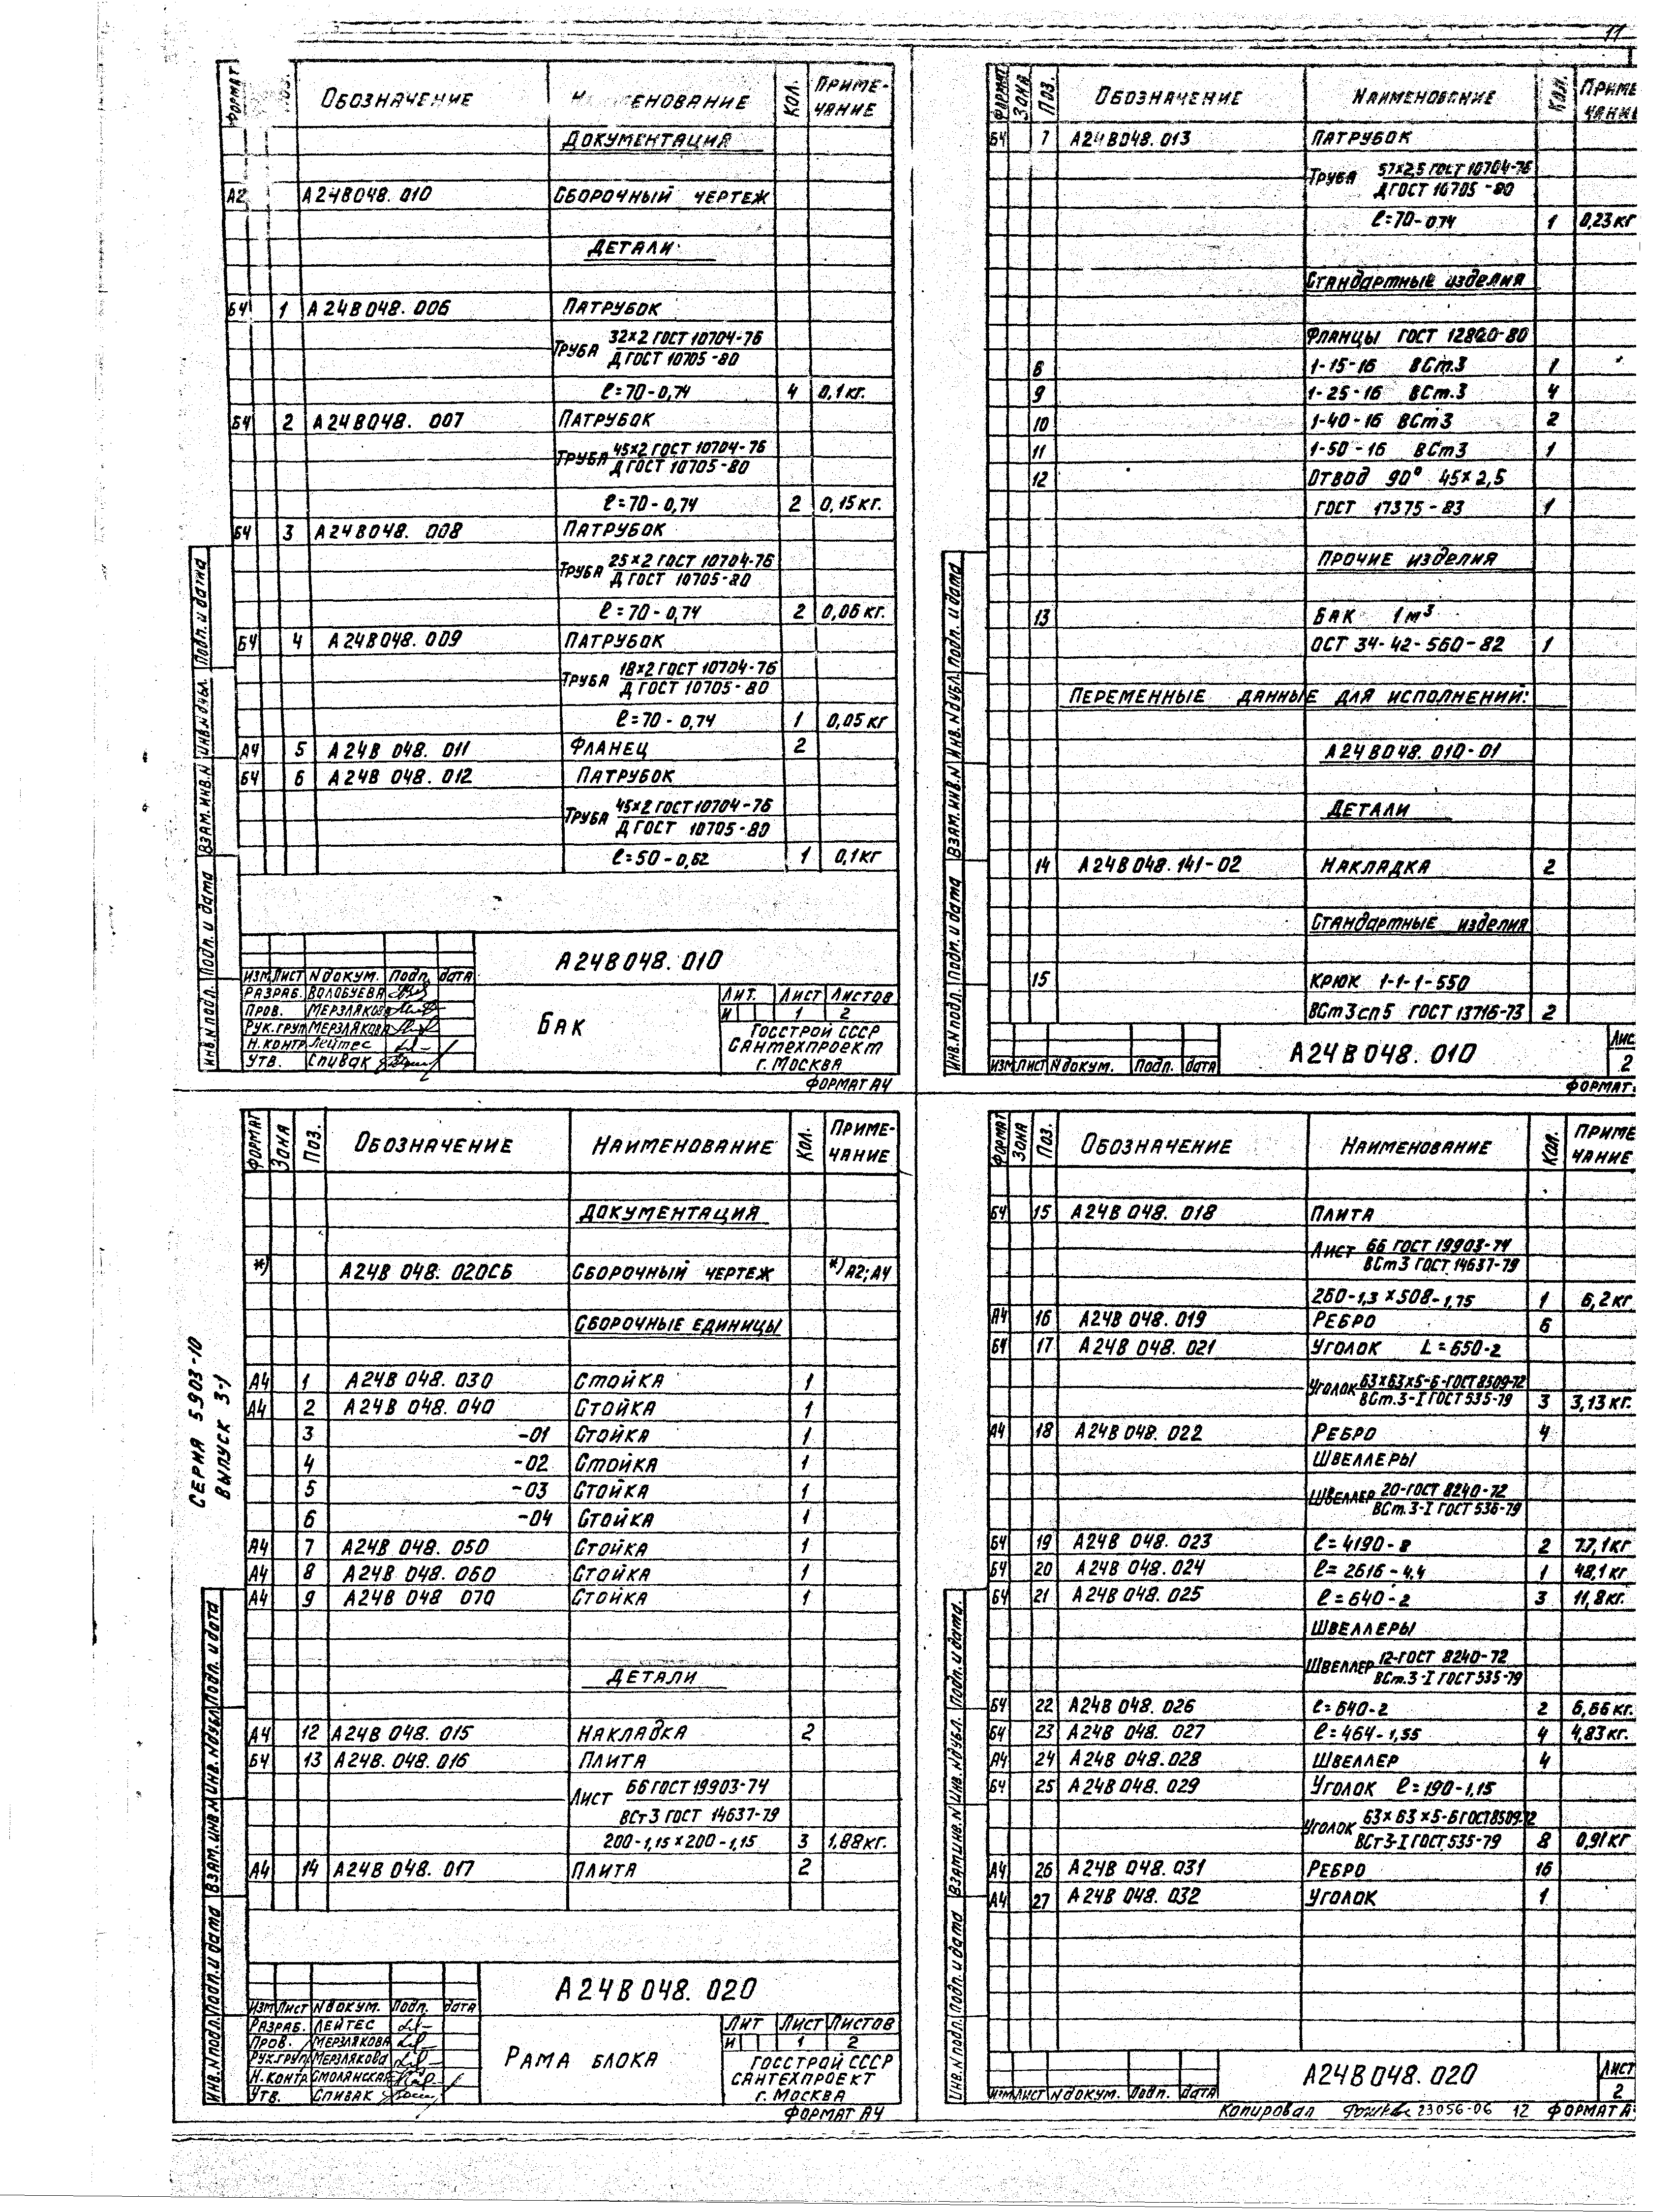 11
ФОРМАТ ОБОЗНАЧЕНИЕ КОЛ. ПРИМЕ-
ЧАНИЕ
ДОКУМЕНТАЦИЯ
А2 А24В048.010 СБОРОЧНЫЙ ЧЕРТЕЖ
ДЕТАЛИ
БЧ 1 А24В048.006 ПАТРУБОК
ТРУБА 32×2 ГОСТ 10704-76
Д ГОСТ 10705-80
ℓ=70-0,74 4 0,1 кг.
БЧ 2 А24В048.007 ПАТРУБОК
ТРУБА 45×2 ГОСТ 10704-76
Д ГОСТ 10705-80
ℓ=70-0,74 2 0,15 кг.
БЧ 3 А24В048.008 ПАТРУБОК
ТРУБА 25×2 ГОСТ 10704-76
Д ГОСТ 10705-80
ℓ=70-0,74 2 0,06 кг.
БЧ 4 А24В048.009 ПАТРУБОК
ТРУБА 18×2 ГОСТ 10704-76
Д ГОСТ 10705-80
ℓ=70-0,74 1 0,05 кг
А4 5 А24В 048.011 ФЛАНЕЦ 2
БЧ 6 А24В 048.012 ПАТРУБОК
ТРУБА 45×2 ГОСТ 10704-76
Д ГОСТ 10705-80
ℓ=50-0,62 1 0,1 кг
ИНВ.N подл. Подп. и дата ВЗАМ. ИНВ.N ИНВ.N дубл. Подп. и дата
А24В048.010
ИЗМ. ЛИСТ N докум. Подп. дата
РАЗРАБ. ВОЛОБУЕВА
ПРОВ. МЕРЗЛЯКОВА
РУК.ГРУП МЕРЗЛЯКОВА
Н.КОНТР ЛЕЙТЕС
УТВ. СПИВАК
БАК
ЛИТ. ЛИСТ ЛИСТОВ
И 1 2
ГОССТРОЙ СССР
САНТЕХПРОЕКТ
г. МОСКВА
ФОРМАТ А4
ФОРМАТ ЗОНА ПОЗ. ОБОЗНАЧЕНИЕ НАИМЕНОВАНИЕ КОЛ. ПРИМЕ
ЧАНИЕ
БЧ 7 А24В048.013 ПАТРУБОК
ТРУБА 57×2,5 ГОСТ 10704-76
Д ГОСТ 10705-80
ℓ=70-074 1 0,23 кг
СТАНДАРТНЫЕ ИЗДЕЛИЯ
ФЛАНЦЫ ГОСТ 12820-80
8 1-15-16 ВСт.3 1
9 1-25-16 ВСт.3 4
10 1-40-16 ВСт3 2
11 1-50-16 ВСт3 1
12 ОТВОД 90° 45×2,5
ГОСТ 17375-83 1
ПРОЧИЕ ИЗДЕЛИЯ
13 БАК 1 м³
ОСТ 34-42-560-82 1
ПЕРЕМЕННЫЕ ДАННЫЕ ДЛЯ ИСПОЛНЕНИЙ:
А24В048.010-01
ДЕТАЛИ
14 А24В048.141-02 НАКЛАДКА 2
СТАНДАРТНЫЕ ИЗДЕЛИЯ
15 КРЮК 1-1-1-550
ВСт3сп5 ГОСТ 13716-73 2
ИНВ.N подл. Подп. и дата ВЗАМ. ИНВ.N ИНВ.N дубл. Подп. и дата
ИЗМ ЛИСТ N докум. Подп. дата А24В048.010 ЛИС
2
ФОРМАТ
ФОРМАТ ЗОНА ПОЗ. ОБОЗНАЧЕНИЕ НАИМЕНОВАНИЕ КОЛ. ПРИМЕ-
ЧАНИЕ
ДОКУМЕНТАЦИЯ
*) А24В 048.020СБ СБОРОЧНЫЙ ЧЕРТЕЖ *) А2; А4
СБОРОЧНЫЕ ЕДИНИЦЫ
А4 1 А24В 048.030 СТОЙКА 1
А4 2 А24В 048.040 СТОЙКА 1
3 -01 СТОЙКА 1
4 -02 СТОЙКА 1
5 -03 СТОЙКА 1
6 -04 СТОЙКА 1
А4 7 А24В 048.050 СТОЙКА 1
А4 8 А24В 048.060 СТОЙКА 1
А4 9 А24В 048 070 СТОЙКА 1
ДЕТАЛИ
А4 12 А24В 048.015 НАКЛАДКА 2
БЧ 13 А24В.048.016 ПЛИТА
ЛИСТ Б6 ГОСТ 19903-74
ВСт3 ГОСТ 14637-79
200-1,15×200-1,15 3 1,88 кг.
А4 14 А24В 048.017 ПЛИТА 2
СЕРИЯ 5903-10
ВЫПУСК 3-1
ИНВ.N подл. Подп. и дата ВЗАМ. ИНВ N ИНВ.N дубл. Подп. и дата
А24В048.020
ИЗМ ЛИСТ N докум. Подп. дата
РАЗРАБ. ЛЕЙТЕС
ПРОВ. МЕРЗЛЯКОВА
РУК.ГРУП МЕРЗЛЯКОВА
Н.КОНТР. СМОЛЯНСКАЯ
УТВ. СПИВАК
РАМА БЛОКА
ЛИТ ЛИСТ ЛИСТОВ
И 1 2
ГОССТРОЙ СССР
САНТЕХПРОЕКТ
г. МОСКВА
ФОРМАТ А4
ФОРМАТ ЗОНА ПОЗ. ОБОЗНАЧЕНИЕ НАИМЕНОВАНИЕ КОЛ. ПРИМЕ
ЧАНИЕ
БЧ 15 А24В 048.018 ПЛИТА
ЛИСТ Б6 ГОСТ 19903-74
ВСт3 ГОСТ 14637-79
260-1,3×508-1,75 1 6,2 кг
А4 16 А24В 048.019 РЕБРО 6
БЧ 17 А24В 048.021 УГОЛОК L=650-2
УГОЛОК 63×63×5-Б-ГОСТ 8509-72
ВСт.3-I ГОСТ 535-79 3 3,13 кг.
А4 18 А24В 048.022 РЕБРО 4
ШВЕЛЛЕРЫ
ШВЕЛЛЕР 20-ГОСТ 8240-72
ВСт.3-I ГОСТ 536-79
БЧ 19 А24В 048.023 ℓ=4190-8 2 77,1 кг
БЧ 20 А24В 048.024 ℓ=2616-4,4 1 48,1 кг
БЧ 21 А24В 048.025 ℓ=640-2 3 11,8 кг.
ШВЕЛЛЕРЫ
ШВЕЛЛЕР 12-ГОСТ 8240-72
ВСт.3-I ГОСТ 535-79
БЧ 22 А24В 048.026 ℓ=640-2 2 6,66 кг.
БЧ 23 А24В 048.027 ℓ=464-1,55 4 4,83 кг.
А4 24 А24В 048.028 ШВЕЛЛЕР 4
БЧ 25 А24В 048.029 УГОЛОК ℓ=190-1,15
УГОЛОК 63×63×5-Б ГОСТ 8509-72
ВСт3-I ГОСТ 535-79 8 0,91 кг
А4 26 А24В 048.031 РЕБРО 16
А4 27 А24В 048.032 УГОЛОК 1
ИНВ.N подл. Подп. и дата ВЗАМ ИНВ.N ИНВ.N дубл. Подп. и дата.
ИЗМ ЛИСТ N докум. Подп. дата А24В048.020 ЛИСТ
2
Копировал 23056-06 12 ФОРМАТ А